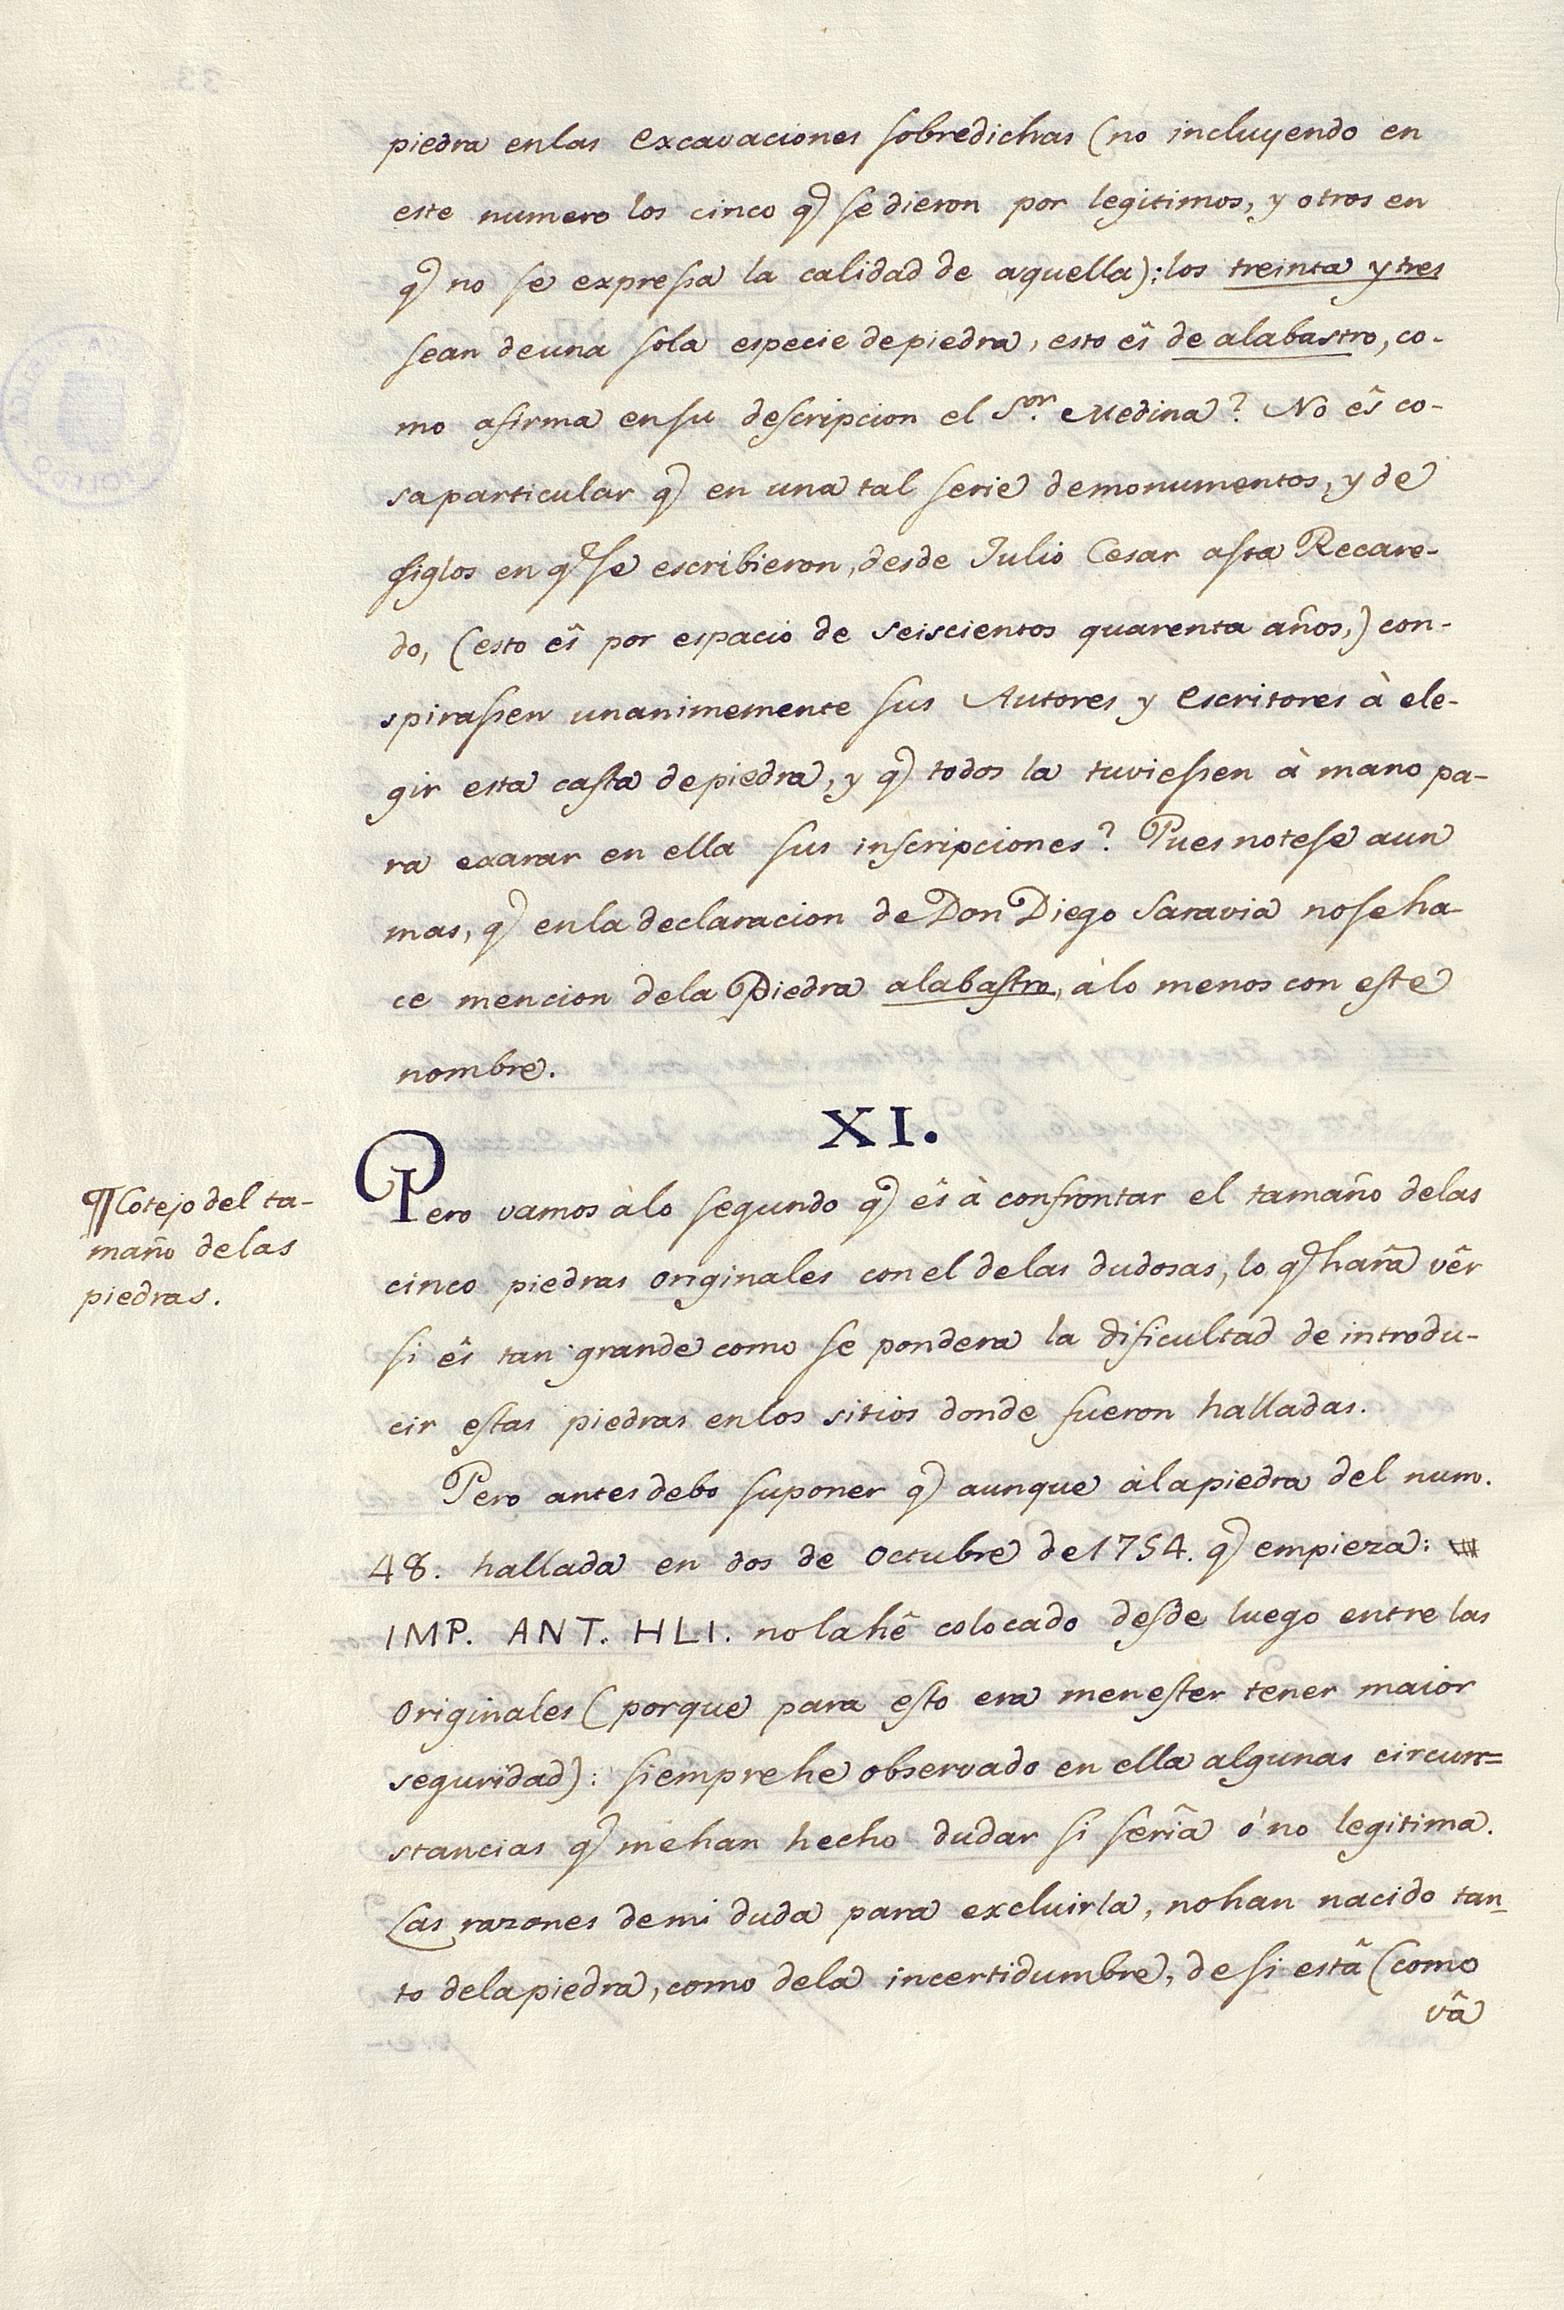 piedra en las excavaciones sobredichas (no incluyendo en
este numero los cinco q̃ se dieron por legitimos, y otros en
q̃ no se expressa la calidad de aquella): los treinta y tres
sean de una sola especie de piedra, esto ês de alabastro, co-
mo afirma en su descripcion el S.or Medina? No ês co-
sa particular q̃ en una tal serie de monumentos, y de
siglos en q̃ se escribieron, desde Julio Cesar asta Recare-
do, (esto ês por espacio de seiscientos quarenta años,) con-
spirassen unanimemente sus Autores y escritores à ele-
gir esta casta de piedra, y q̃ todos la tuviessen à mano pa-
ra exarar en ella sus inscripciones? Pues notese aun
mas, q̃ en la declaracion de Don Diego Saravia no se ha-
ce mencion de la Piedra alabastro, à lo menos con este
nombre.
XI.
¶ Cotejo del ta-
maño de las
piedras.
Pero vamos à lo segundo q̃ ês à confrontar el tamaño de las
cinco piedras originales con el de las dudosas, lo q̃ harâ vêr
si ês tan grande como se pondera la dificultad de introdu-
cir estas piedras en los sitios donde fueron halladas.
Pero antes debo suponer q̃ aunque à la piedra del num.
48. hallada en dos de Octubre de 1754. q̃ empieza:
IMP. ANT. HLI. no la hê colocado desde luego entre las
Originales (porque para esto era menester tener maior
seguridad): siempre he observado en ella algunas circun=
stancias q̃ me han hecho dudar si serîa ó no legitima.
Las razones de mi duda para excluirla, no han nacido tan-
to de la piedra, como de la incertidumbre, de si estâ (como
vâ